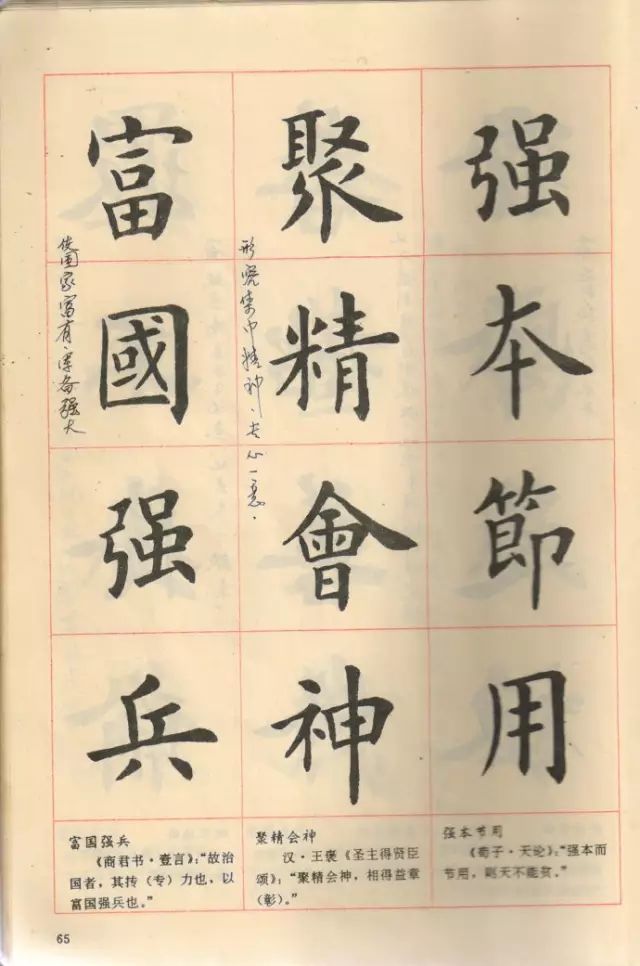 强本節用
聚精會神
形容集中精神、专心一意.
富國强兵
使国家富有,军备强大
强本节用
《荀子·天论》：“强本而
节用，则天不能贫。”
聚精会神
汉·王褒《圣主得贤臣
颂》：“聚精会神，相得益章
（彰）。”
富国强兵
《商君书·壹言》：“故治
国者，其抟（专）力也，以
富国强兵也。”
65